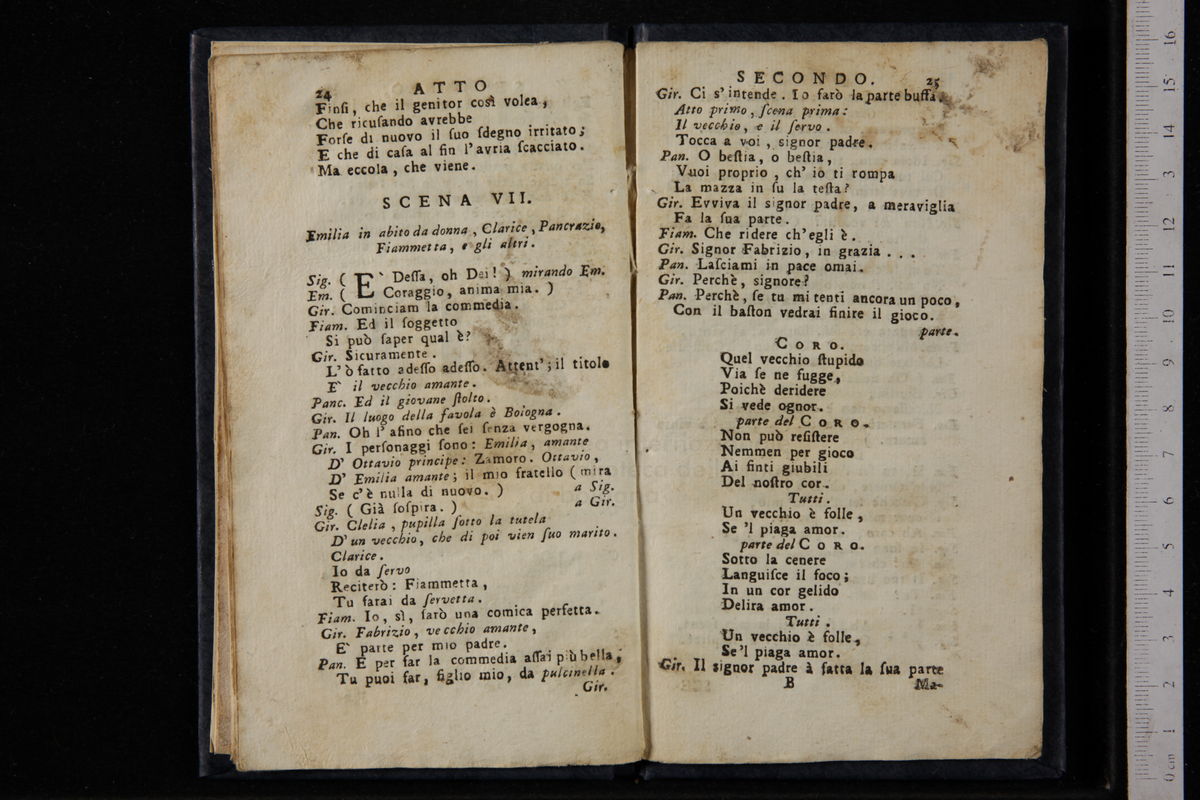 24 ATTO
Finſi, che il genitor così volea,
Che ricuſando avrebbe
Forſe di nuovo il ſuo ſdegno irritato;
E che di caſa al fin l'avria ſcacciato.
Ma eccola, che viene.
SCENA VII.
Emilia in abito da donna, Clarice, Pancrazio,
Fiammetta, e gli altri.
Sig. ( E` Deſſa, oh Dei! ) mirando Em.
Em. ( Coraggio, anima mia. )
Gir. Cominciam la commedia.
Fiam. Ed il ſoggetto
Si può ſaper qual è?
Gir. Sicuramente.
L'ò fatto adeſſo adeſſo. Attent'; il titolo
E` il vecchio amante.
Panc. Ed il giovane ſtolto.
Gir. Il luogo della favola è Bologna.
Pan. Oh l'aſino che ſei ſenza vergogna.
Gir. I perſonaggi ſono: Emilia, amante
D' Ottavio principe: Zamoro. Ottavio,
D' Emilia amante; il mio fratello ( mira
Se c'è nulla di nuovo. ) a Sig.
Sig. ( Già ſoſpira. ) a Gir.
Gir. Clelia, pupilla ſotto la tutela
D'un vecchio, che di poi vien ſuo marito.
Clarice.
Io da ſervo
Reciterò: Fiammetta,
Tu farai da ſervetta.
Fiam. Io, sì, farò una comica perfetta.
Gir. Fabrizio, vecchio amante,
E` parte per mio padre.
Pan. E per far la commedia aſſai più bella,
Tu puoi far, figlio mio, da pulcinella.
Gir.
SECONDO. 25
Gir. Ci s'intende. Io farò la parte buffa.
Atto primo, ſcena prima:
Il vecchio, e il ſervo.
Tocca a voi, signor padre.
Pan. O beſtia, o beſtia,
Vuoi proprio, ch'io ti rompa
La mazza in ſu la teſta?
Gir. Evviva il signor padre, a meraviglia
Fa la ſua parte.
Fiam. Che ridere ch'egli è.
Gir. Signor Fabrizio, in grazia . . .
Pan. Laſciami in pace omai.
Gir. Perchè, signore?
Pan. Perchè, ſe tu mi tenti ancora un poco,
Con il baſton vedrai finire il gioco.
parte.
CORO.
Quel vecchio ſtupido
Via ſe ne fugge,
Poichè deridere
Si vede ognor.
parte del CORO.
Non può reſiſtere
Nemmen per gioco
Ai finti giubili
Del noſtro cor.
Tutti.
Un vecchio è folle,
Se 'l piaga amor.
parte del CORO.
Sotto la cenere
Languiſce il foco;
In un cor gelido
Delira amor.
Tutti.
Un vecchio è folle,
Se 'l piaga amor.
Gir. Il signor padre à fatta la ſua parte
B Ma-
16
15
14
3
12
11
10
9
8
7
6
5
4
3
2
1
0 cm